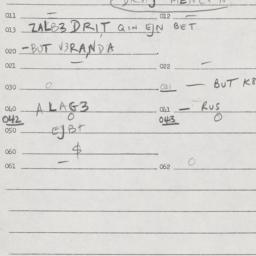 011 — 012 —
013 ZALB3 DRIT QIN EJN BET
020 -BUT V3RANDA
021 — 022 —
030 O 031 — BUT K8
040 ALAG3 041 — RUS
042 O 043 O
050 EJBT
060 $
061 — 062 O